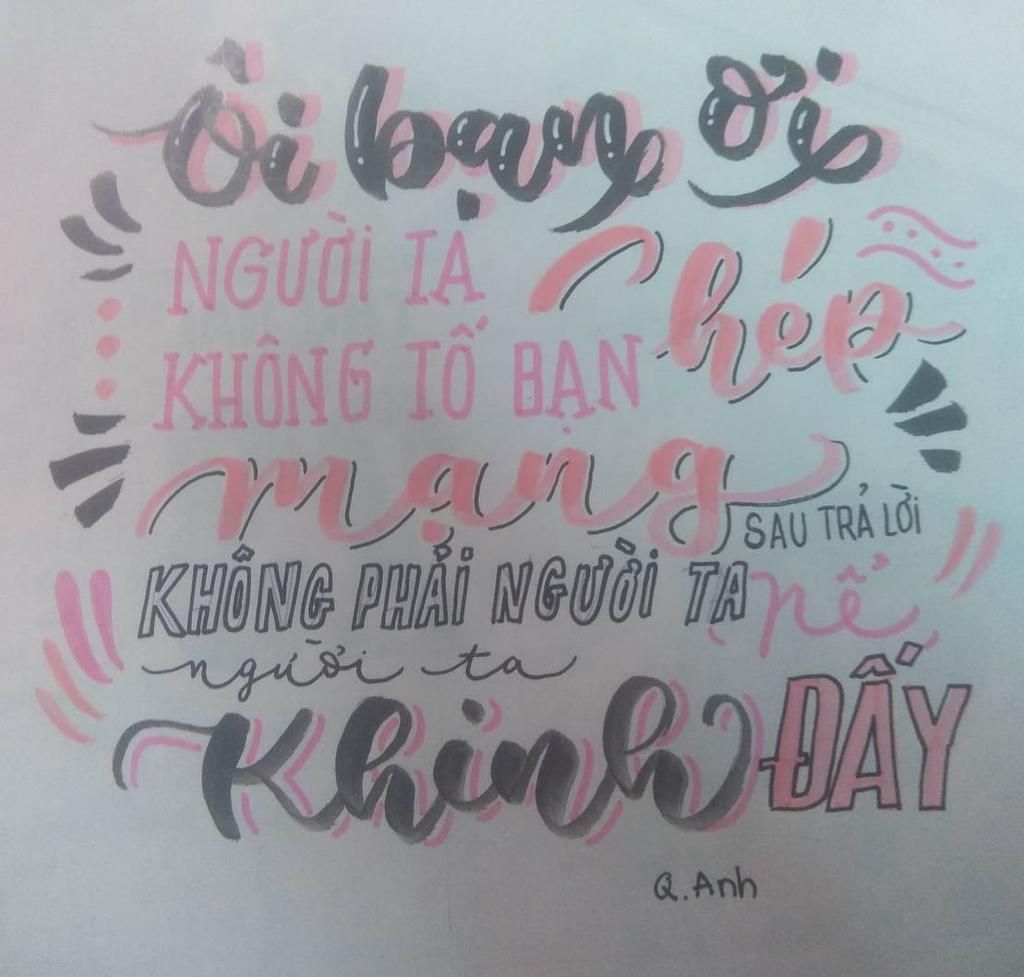 Ồi bạn ơi
NGƯỜI TA
KHÔNG TỐ BẠN chép
mạng SAU TRẢ LỜI
KHÔNG PHẢI NGƯỜI TA nể
người ta
Khinh ĐẤY
Q.Anh